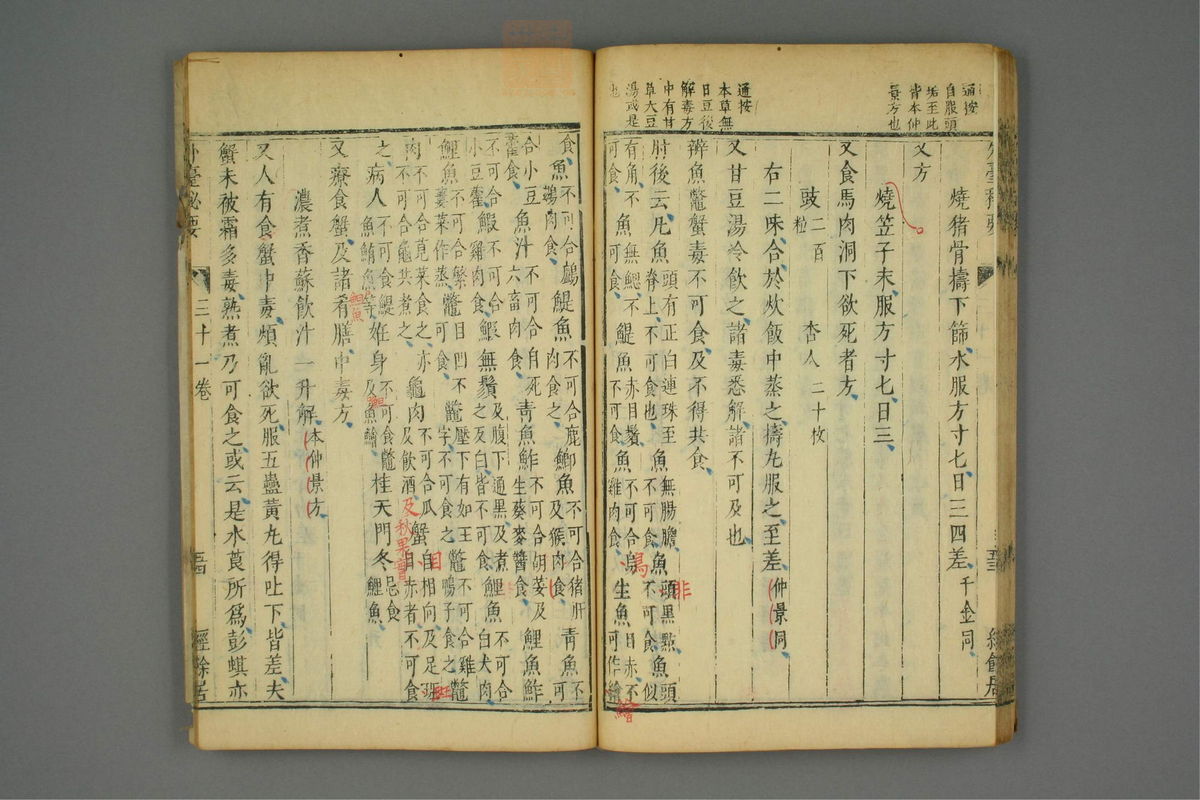 通按
自服頭
垢至此
皆本仲
景方也
燒猪骨擣下篩水服方寸七日三四差千金同
又方
燒笠子末服方寸七日三
又食馬肉洞下欲死者方
豉二百粒 杏人二十枚
右二味合於炊飯中蒸之擣丸服之至差仲景同
又甘豆湯冷飲之諸毒悉解諸不可及也
通按
本草無
日豆後
解毒方
中有甘
草大豆
湯或是
也
辨魚鼈蟹毒不可食及不得共食
肘後云凡魚頭有正白連珠至脊上不可食也魚無腸膽不可食魚頭黑點不可食魚頭似
有角不可食魚無鰓不可食鯷魚赤目鬚不可食魚不可合烏雞肉食生魚目赤不可作鱠
非
鳥
鱠
食魚不可合鸕鷀肉食鯷魚不可合鹿肉食之鯽魚不可合猪肝及猴肉食青魚不可
合小豆藿食魚汁不可合自死六畜肉食青魚鮓不可合胡荽及生葵麥醬食鯉魚鮓
不可合小豆藿鰕不可合雞肉食鰕無鬚及腹下通黑及煮之反白皆不可食鯉魚不可合白犬肉
鯉魚不可合蘩蔞菜作蒸鼈目凹不可食鼈壓下有如王字不可食之鼈不可合雞鴨子食之鼈
肉不可合莧菜食之亦不可合龜共煮之龜肉不可合瓜及飲酒蟹目相向及足班目赤者不可食
及秋果會
目
斑
之病人不可食鯷魚鮪魚等妊身不可食鼈及魚鱠桂天門冬忌食鯉魚
鯤魚
又療食蟹及諸肴膳中毒方
濃煮香蘇飲汁一升解本仲景方
又人有食蟹中毒煩亂欲死服五蠱黃丸得吐下皆差夫
蟹未被霜多毒熟煮乃可食之或云是水莨所爲彭蜞亦
外臺祕要
三十一卷
經餘居